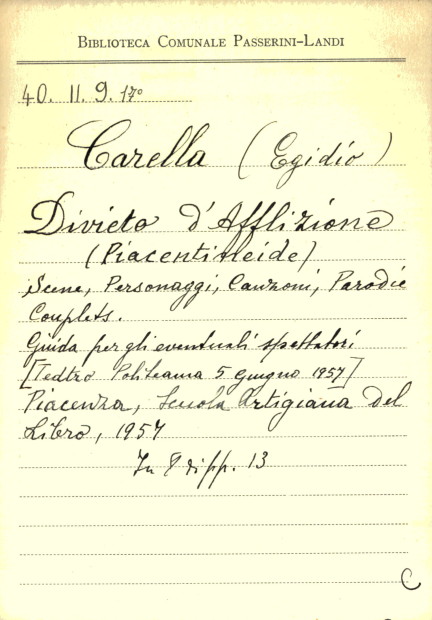 BIBLIOTECA COMUNALE PASSERINI-LANDI
40. II. 9. 17º
Carella (Egidio)
Divieto d'Afflizione
(Piacentineide)
Scene, Personaggi, Canzoni, Parodie
Couplets.
Guida per gli eventuali spettatori
[Teatro Politeama 5 giugno 1957]
Piacenza, Scuola Artigiana del
Libro, 1957
In 8 di pp. 13
C